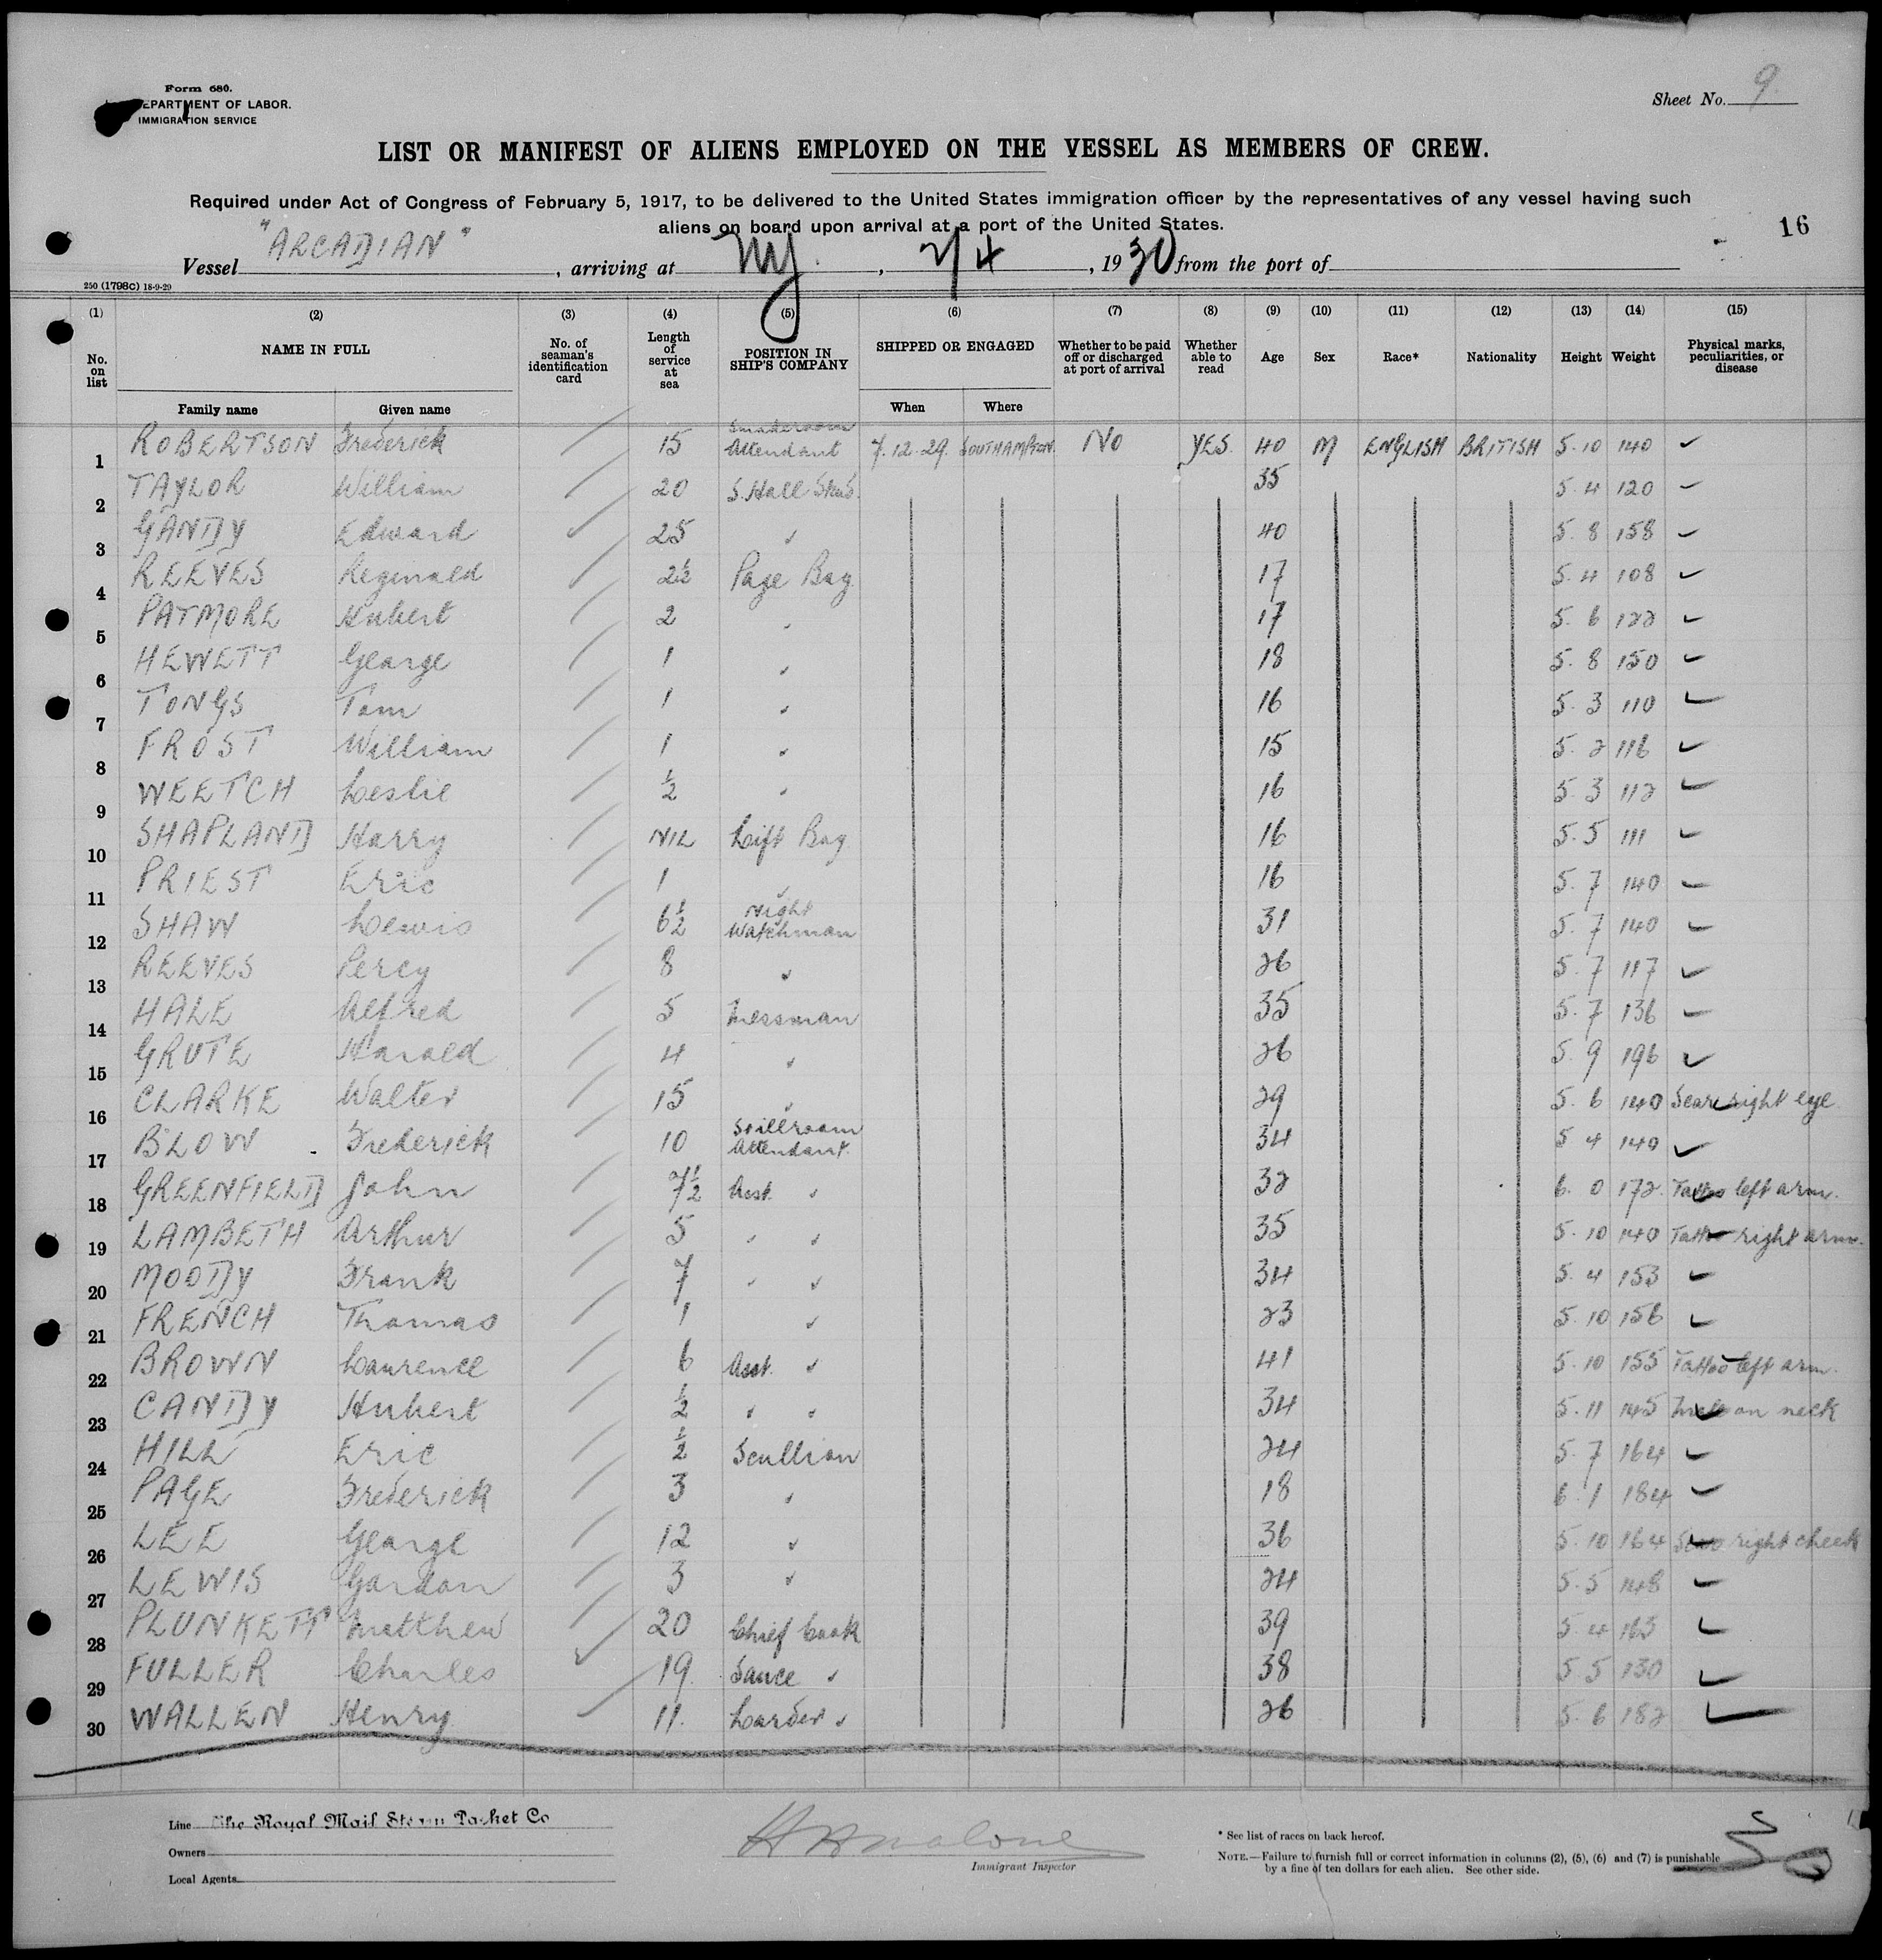 Form 680.
DEPARTMENT OF LABOR.
IMMIGRATION SERVICE
Sheet No. 9
LIST OR MANIFEST OF ALIENS EMPLOYED ON THE VESSEL AS MEMBERS OF CREW.
Required under Act of Congress of February 5, 1917, to be delivered to the United States immigration officer by the representatives of any vessel having such
aliens on board upon arrival at a port of the United States.
16
Vessel "ARCADIAN", arriving at NY., 2/4, 1930 from the port of
250 (1798c) 18-9-29
(1) (2) (3) (4) (5) (6) (7) (8) (9) (10) (11) (12) (13) (14) (15)
No. on list NAME IN FULL No. of seaman's identification card Length of service at sea POSITION IN SHIP'S COMPANY SHIPPED OR ENGAGED Whether to be paid off or discharged at port of arrival Whether able to read Age Sex Race* Nationality Height Weight Physical marks, peculiarities, or disease
Family name Given name When Where
1 ROBERTSON Frederick 15 Smokeroom Attendant 7.12.29. SOUTHAMPTON No YES 40 M ENGLISH BRITISH 5.10 140 ✓
2 TAYLOR William 20 S. Hall Stwd. 35 5.4 120 ✓
3 GANDY Edward 25 " 40 5.8 158 ✓
4 REEVES Reginald 2½ Page Boy 17 5.4 108 ✓
5 PATMORE Hubert 2 " 17 5.6 122 ✓
6 HEWETT George 1 " 18 5.8 150 ✓
7 TONGS Tom 1 " 16 5.3 110 ✓
8 FROST William 1 " 15 5.2 116 ✓
9 WEETCH Leslie ½ " 16 5.3 112 ✓
10 SHAPLAND Harry NIL Lift Boy 16 5.5 111 ✓
11 PRIEST Eric 1 " 16 5.7 140 ✓
12 SHAW Lewis 6½ Night Watchman 31 5.7 140 ✓
13 REEVES Percy 8 " 26 5.7 117 ✓
14 HALE Alfred 5 Messman 35 5.7 136 ✓
15 GRUTE Harold 4 " 26 5.9 196 ✓
16 CLARKE Walter 15 " 29 5.6 140 Scar right eye
17 BLOW Frederick 10 Stillroom Attendant 34 5 4 140 ✓
18 GREENFIELD John 7½ Asst. " 32 6.0 172. Tattoo left arm.
19 LAMBETH Arthur 5 " " 35 5.10 140 Tattoo right arm.
20 MOODY Frank 7 " " 34 5.4 153 ✓
21 FRENCH Thomas 1 " 23 5.10 156 ✓
22 BROWN Laurence 6 Asst. " 41 5.10 155 Tattoo left arm.
23 CANDY Hubert ½ " " 34 5.11 145 on neck
24 HILL Eric ½ Scullion 24 5.7 164 ✓
25 PAGE Frederick 3 " 18 6.1 184 ✓
26 LEE George 12 " 36 5.10 164 Scar right cheek
27 LEWIS Gordon 3 " 24 5.5 148 ✓
28 PLUNKETT Matthew 20 Chief Cook 39 5 4 165 ✓
29 FULLER Charles 19. Sauce " 38 5 5 130 ✓
30 WALLEN Henry 11. Larder " 26 5.6 182 ✓
Line The Royal Mail Steam Packet Co
Owners
Local Agents
Immigrant Inspector
* See list of races on back hereof.
NOTE.—Failure to furnish full or correct information in columns (2), (5), (6) and (7) is punishable
by a fine of ten dollars for each alien. See other side.
30